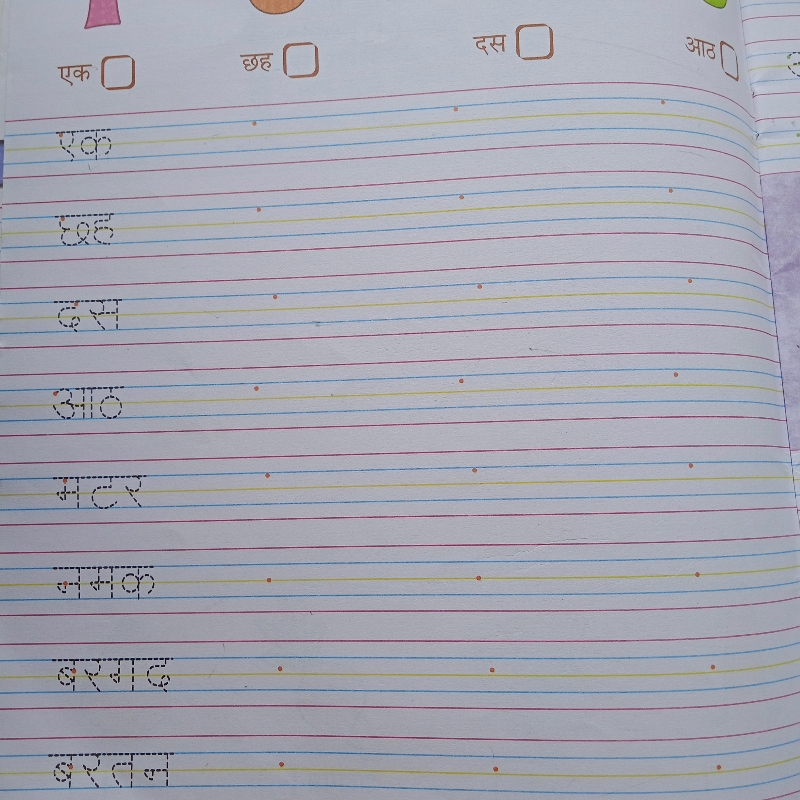 एक छह दस आठ
एक
छह
दस
आठ
मटर
नमक
बरगद
बरतन